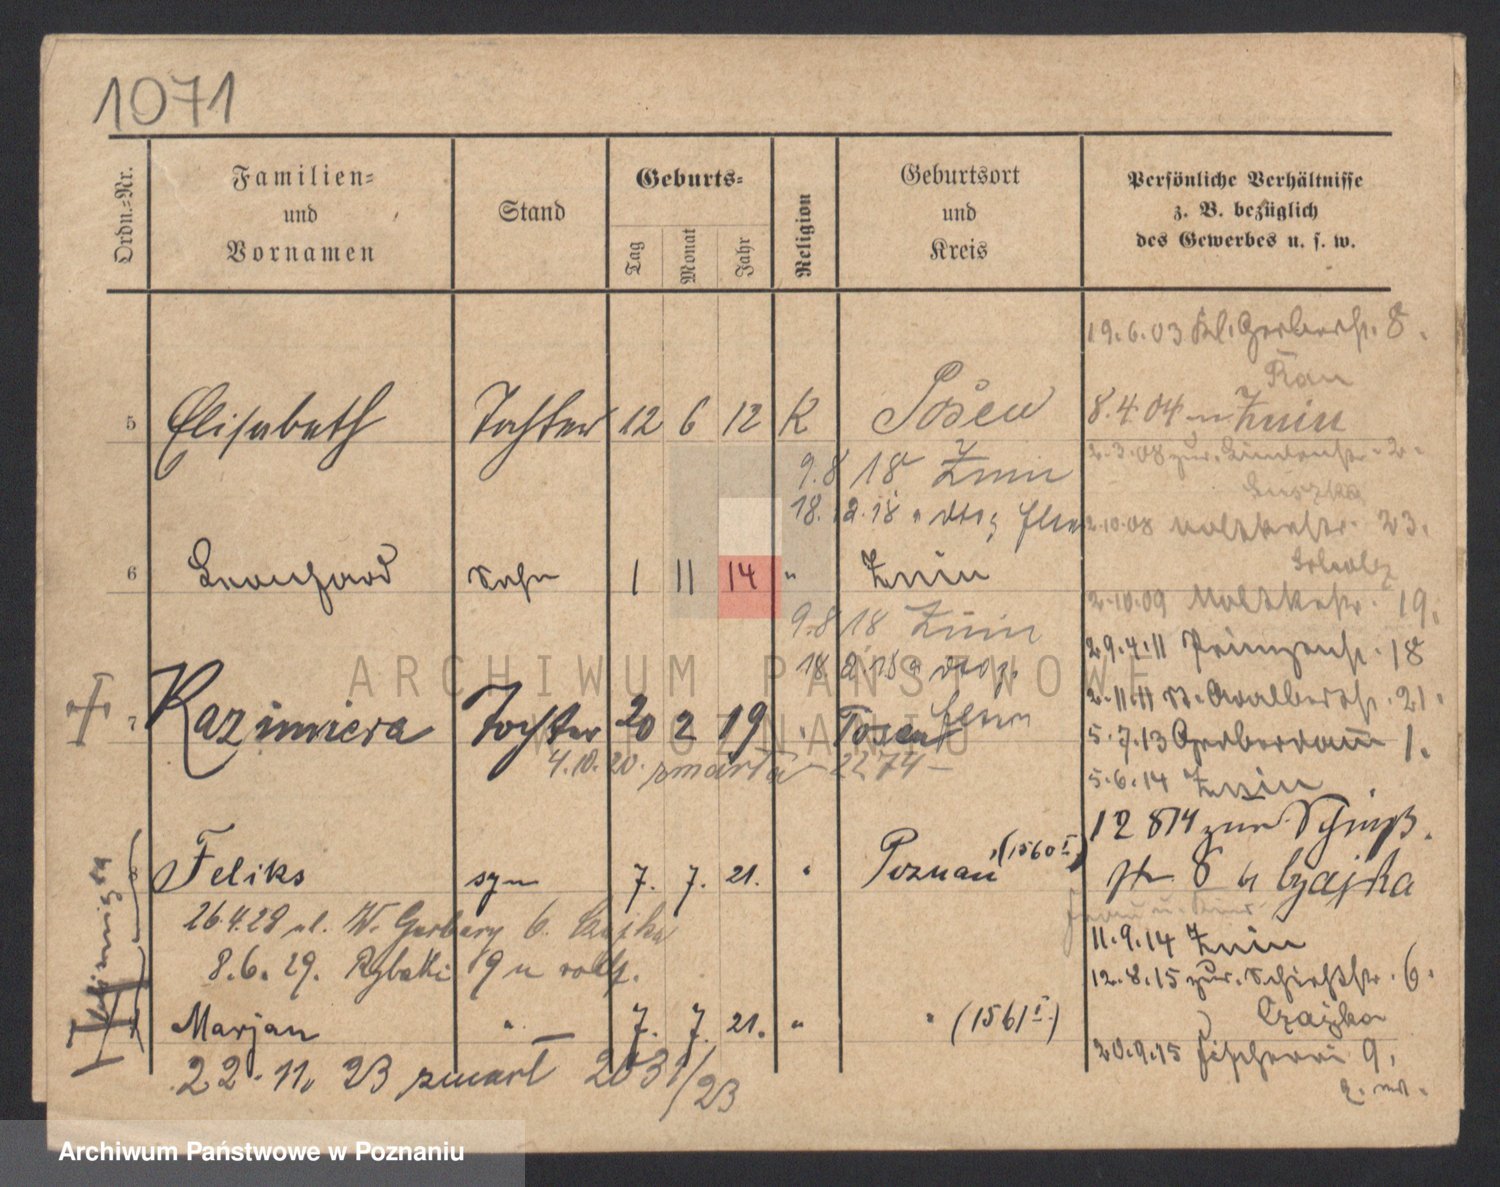 1071
Ordn.-Nr.
Familien-
und
Vornamen
Stand
Geburts-
Tag
Monat
Jahr
Religion
Geburtsort
und
Kreis
Persönliche Verhältnisse
z. B. bezüglich
des Gewerbes u. s. w.
5 Elisabeth Tochter 12 6 12 K Posen
9.8 18 Znin
18.12.18
6 Leonhard Sohn 1 11 14 " Znin
9.8 18 Znin
18.12.18
7 Kazimiera Tochter 20 2 19 " Posen
4.10.20. zmarła - 2274 -
8 Feliks syn 7. 7. 21. " Poznań (1560 I)
26.4.29 W. Garbary 6. Czajka
8.6.29. Rybaki 19 u
Marjan " 7. 7. 21. " " (1561 I)
22.11.23 zmarł 2031/23
Bliźnięta
19.6.03 Kl. Gerberstr. 8.
Rau
8.4.04 n Znin
2.3.08 zur. 2.
2.10.08 Moltkestr. 23.
Scholz
2.10.09 Moltkestr. 19.
29.4.11 Prinzenstr. 18
2.11.11 St. Adalbertstr. 21.
5.7.13 Gerberdamm 1.
5.6.14 Znin
12 8 14 zur Schieß.
str 6 b Czajka
11.9.14 Znin
12.8.15 zur. Schießstr. 6.
Czajka
20.9.15 Fischerei 9.
ARCHIWUM PAŃSTWOWE
W POZNANIU
Archiwum Państwowe w Poznaniu